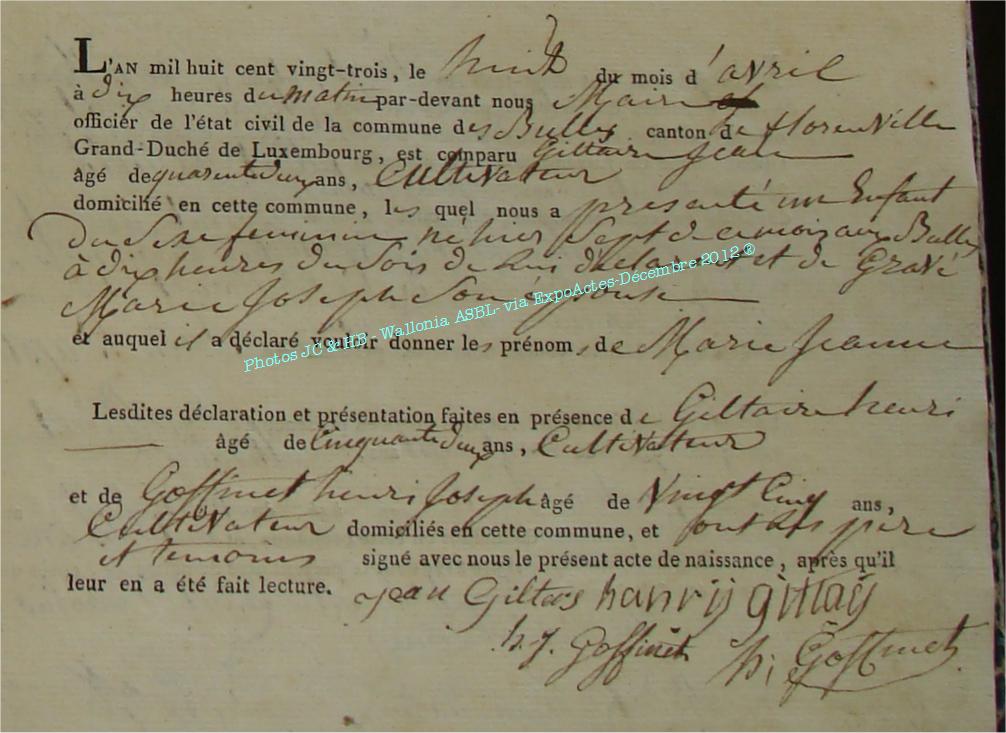 L'AN mil huit cent vingt-trois, le huit du mois d'avril
à dix heures du matin par-devant nous Maire
officier de l'état civil de la commune des Bulles canton de florenville
Grand-Duché de Luxembourg, est comparu Giltaire Jean
âgé de quarente deux ans, Cultivateur
domicilié en cette commune, les quel nous a presenté un Enfant
du Sexe feminin né hier Sept de ce mois aux Bulles
à dix heures du Soir de lui déclarant et de Gravé
Marie Joseph Son epouse
et auquel il a déclaré vouloir donner les prénoms de Marie Jeanne
Lesdites déclaration et présentation faites en présence de Giltaire henri
âgé de Cinquante deux ans, Cultivateur
et de Goffinet henri Joseph âgé de Vingt Cinq ans,
Cultivateur domiciliés en cette commune, et ont les pere
et temoins signé avec nous le présent acte de naissance, après qu'il
leur en a été fait lecture. jean Giltair hanrij gittaij
h. j. Goffinet hi Goffinet
Photos JC & HB - Wallonia ASBL- via ExpoActes-Décembre 2012 ®